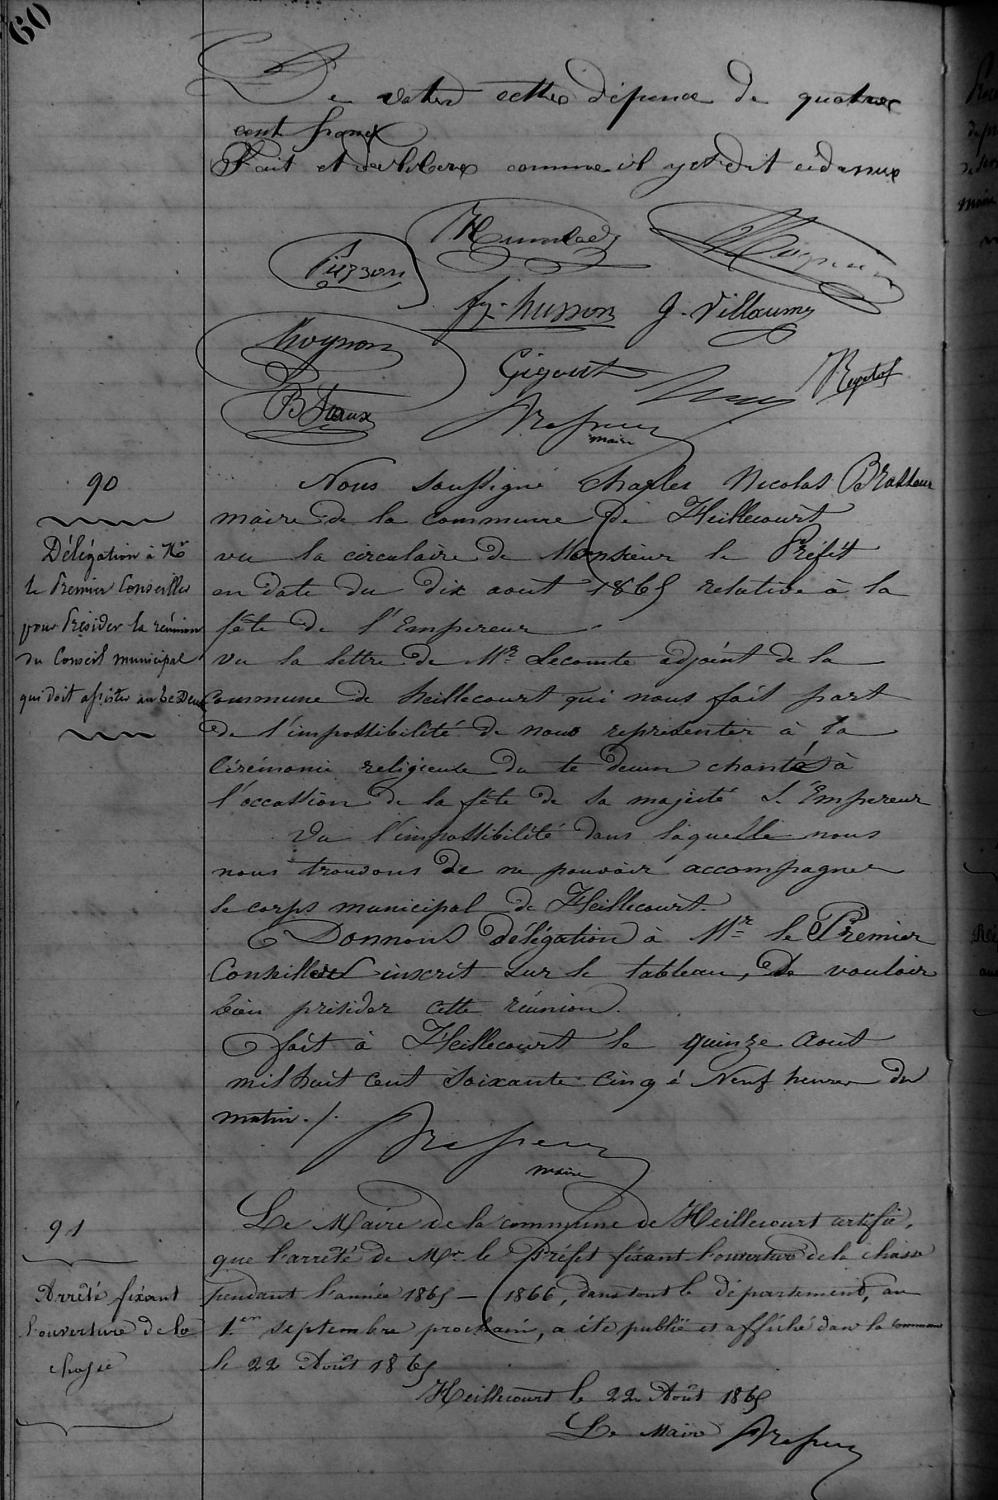 60
De voter cette dépense de quatre
cent francs
Fait et délibéré comme il y est dit cidessus
Pierson
Fç. husson G. Villaume
Moynon
Gigout
B
maire
90
Délégation à Mr
le Premier Conseiller
pour Présider la réunion
du Conseil municipal
qui doit assister au Te Deum
Nous soussigné Charles Nicolas
maire de la commune de Heillecourt
vu la circulaire de Monsieur le Préfet
en date du dix aout 1865 relative à la
fête de l'Empereur
vu la lettre de Mr Lecomte adjoint de la
Commune de heillecourt qui nous fait part
de l'impossibilité de nous représenter à la
Cérémonie religieuse du te deum chanté à
l'occassion de la fête de sa majesté L'Empereur
Vu l'impossibilité dans laquelle nous
nous trouvons de ne pouvoir accompagner
le corps municipal de Heillecourt.
Donnons délégation à Mr le Premier
Conseiller inscrit sur le tableau, de vouloir
bien présider cette réunion.
fait à Heillecourt le quinze Aout
mil huit cent soixante cinq à Neuf heures du
matin ./.
maire
91
Arrêté fixant
l'ouverture de la
chasse
Le Maire de la commune de Heillecourt certifie,
que l'arrêté de Mr le Préfet fixant l'ouverture de la chasse
pendant l'année 1865 – 1866, dans tout le département, au
1er septembre prochain, a été publié et affiché dans la commune
le 22 Août 1865
Heillecourt le 22 Août 1865
Le Maire